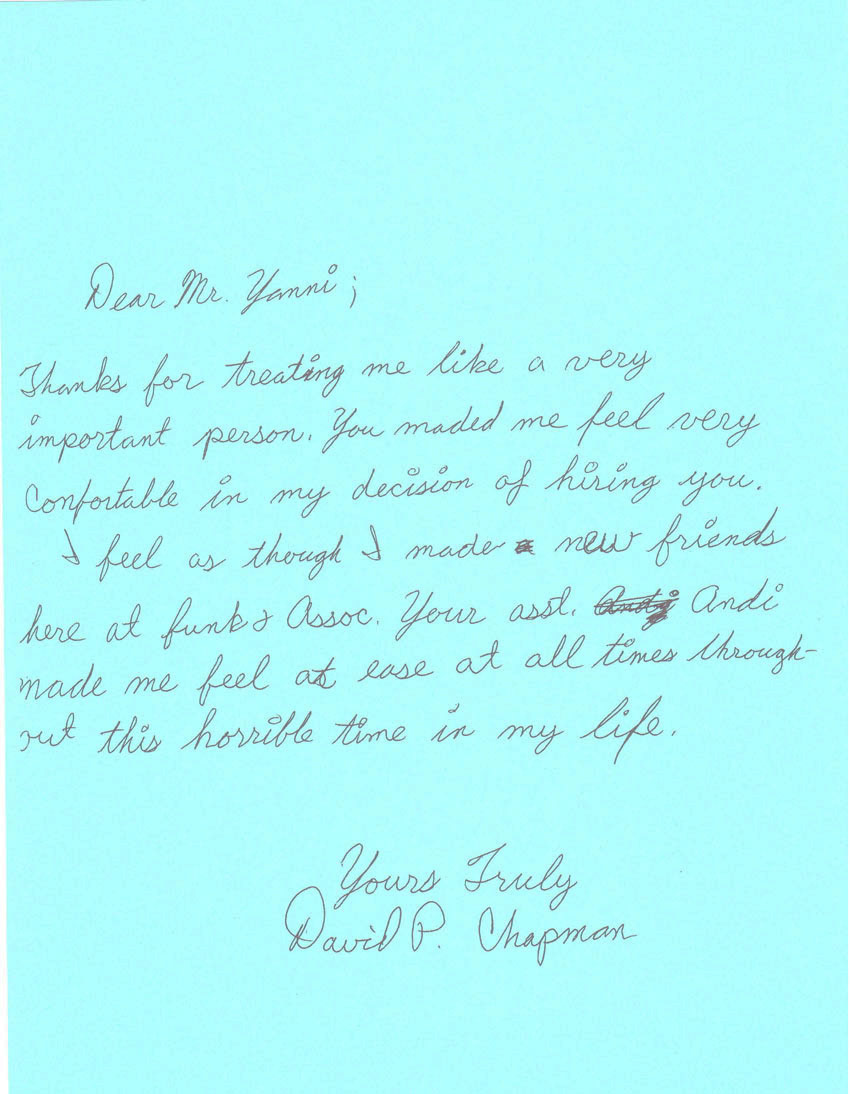 Dear Mr. Yanni;
Thanks for treating me like a very
important person. You maded me feel very
Confortable in my decision of hiring you.
I feel as though I made new friends
here at funk & Assoc. Your asst. Andi
made me feel at ease at all times through-
out this horrible time in my life.
Yours Truly
David P. Chapman